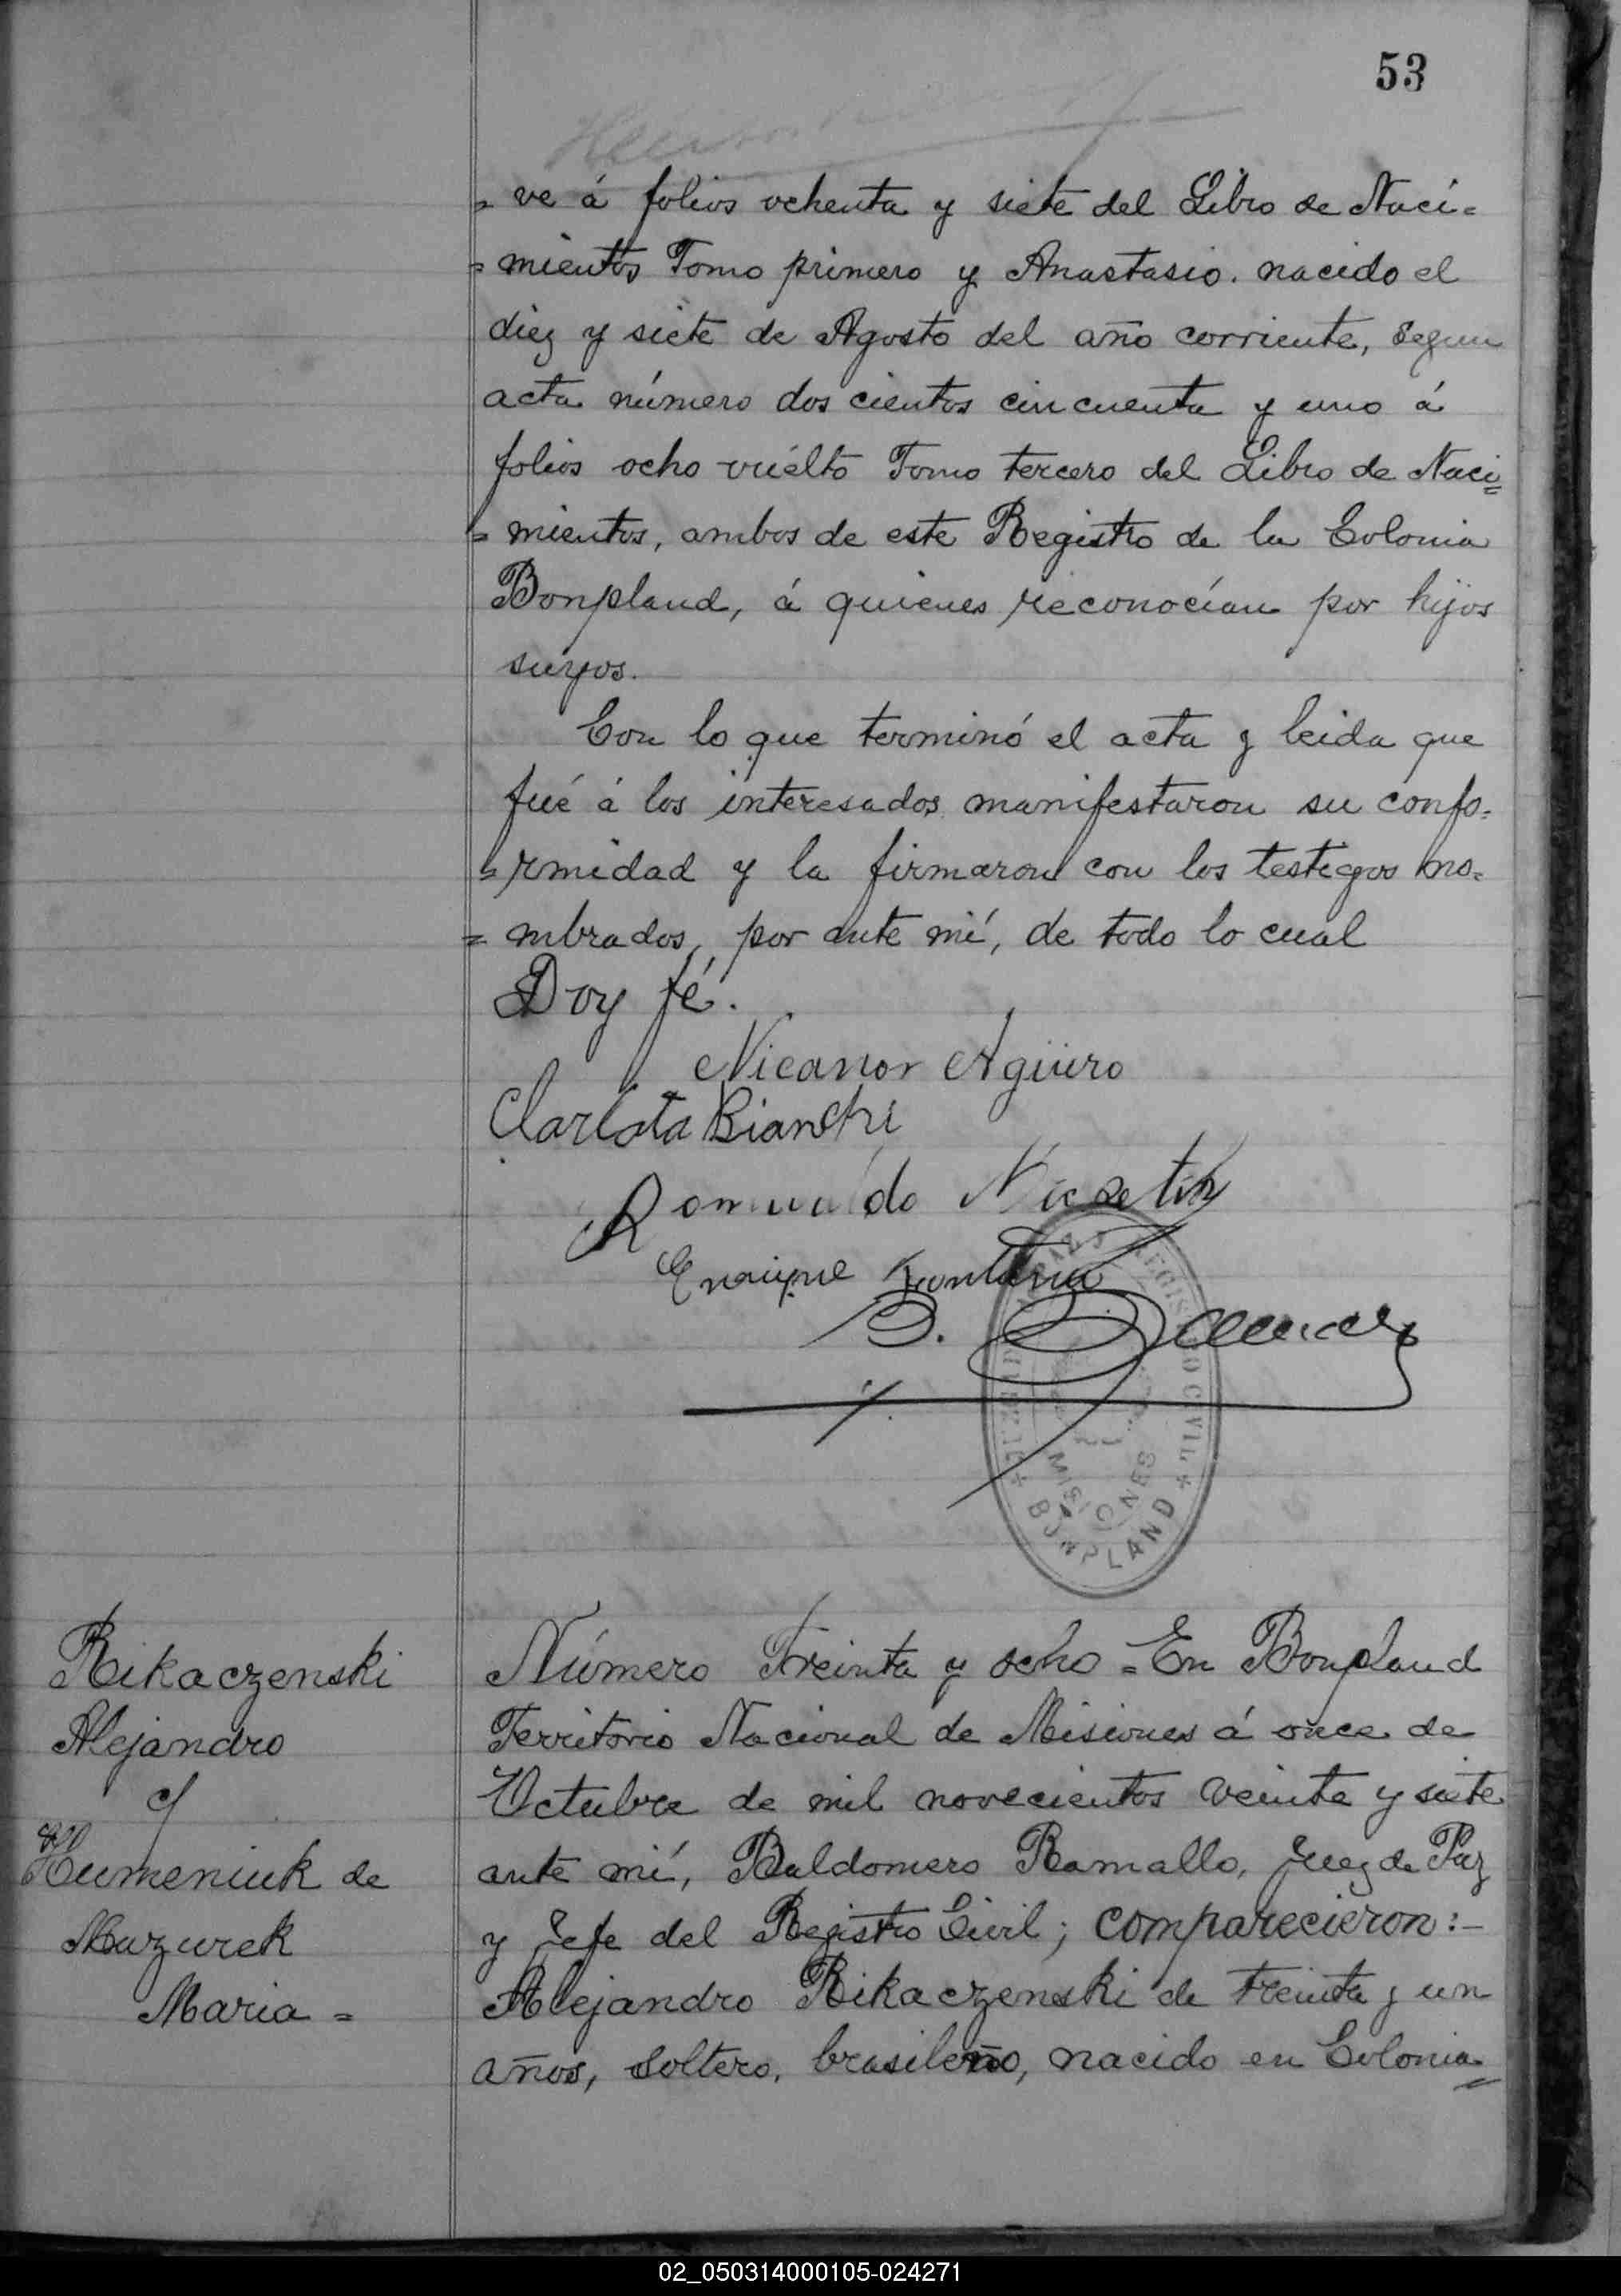 53
= ve á folios ochenta y siete del Libro de Naci=
= mientos Tomo primero y Anastasio. nacido el
diez y siete de Agosto del año corriente, segun
acta número dos cientos cincuenta y uno á
folios ocho vuelto Tomo tercero del Libro de Naci=
= mientos, ambos de este Registro de la Colonia
Bonpland, á quienes reconocían por hijos
suyos.
Con lo que terminó el acta y leida que
fué á los interesados manifestaron su confo=
= rmidad y la firmaron con los testigos no=
= mbrados, por ante mí, de todo lo cual
Doy fé.
Nicanor Agüero
Carlota Bianchi
Romualdo
Enrique
B.
REGISTRO CIVIL
MISIONES
* BONPLAND *
Rikaczenski
Alejandro
c/
Humeniuk de
Mazurek
Maria =
Número Treinta y ocho = En Bonpland
Territorio Nacional de Misiones á once de
Octubre de mil novecientos veinte y siete
ante mí, Baldomero Ramallo, Juez de Paz
y Jefe del Registro Civil; comparecieron:-
Alejandro Rikaczenski de treinta y un
años, soltero, brasileño, nacido en Colonia=
02_050314000105-024271